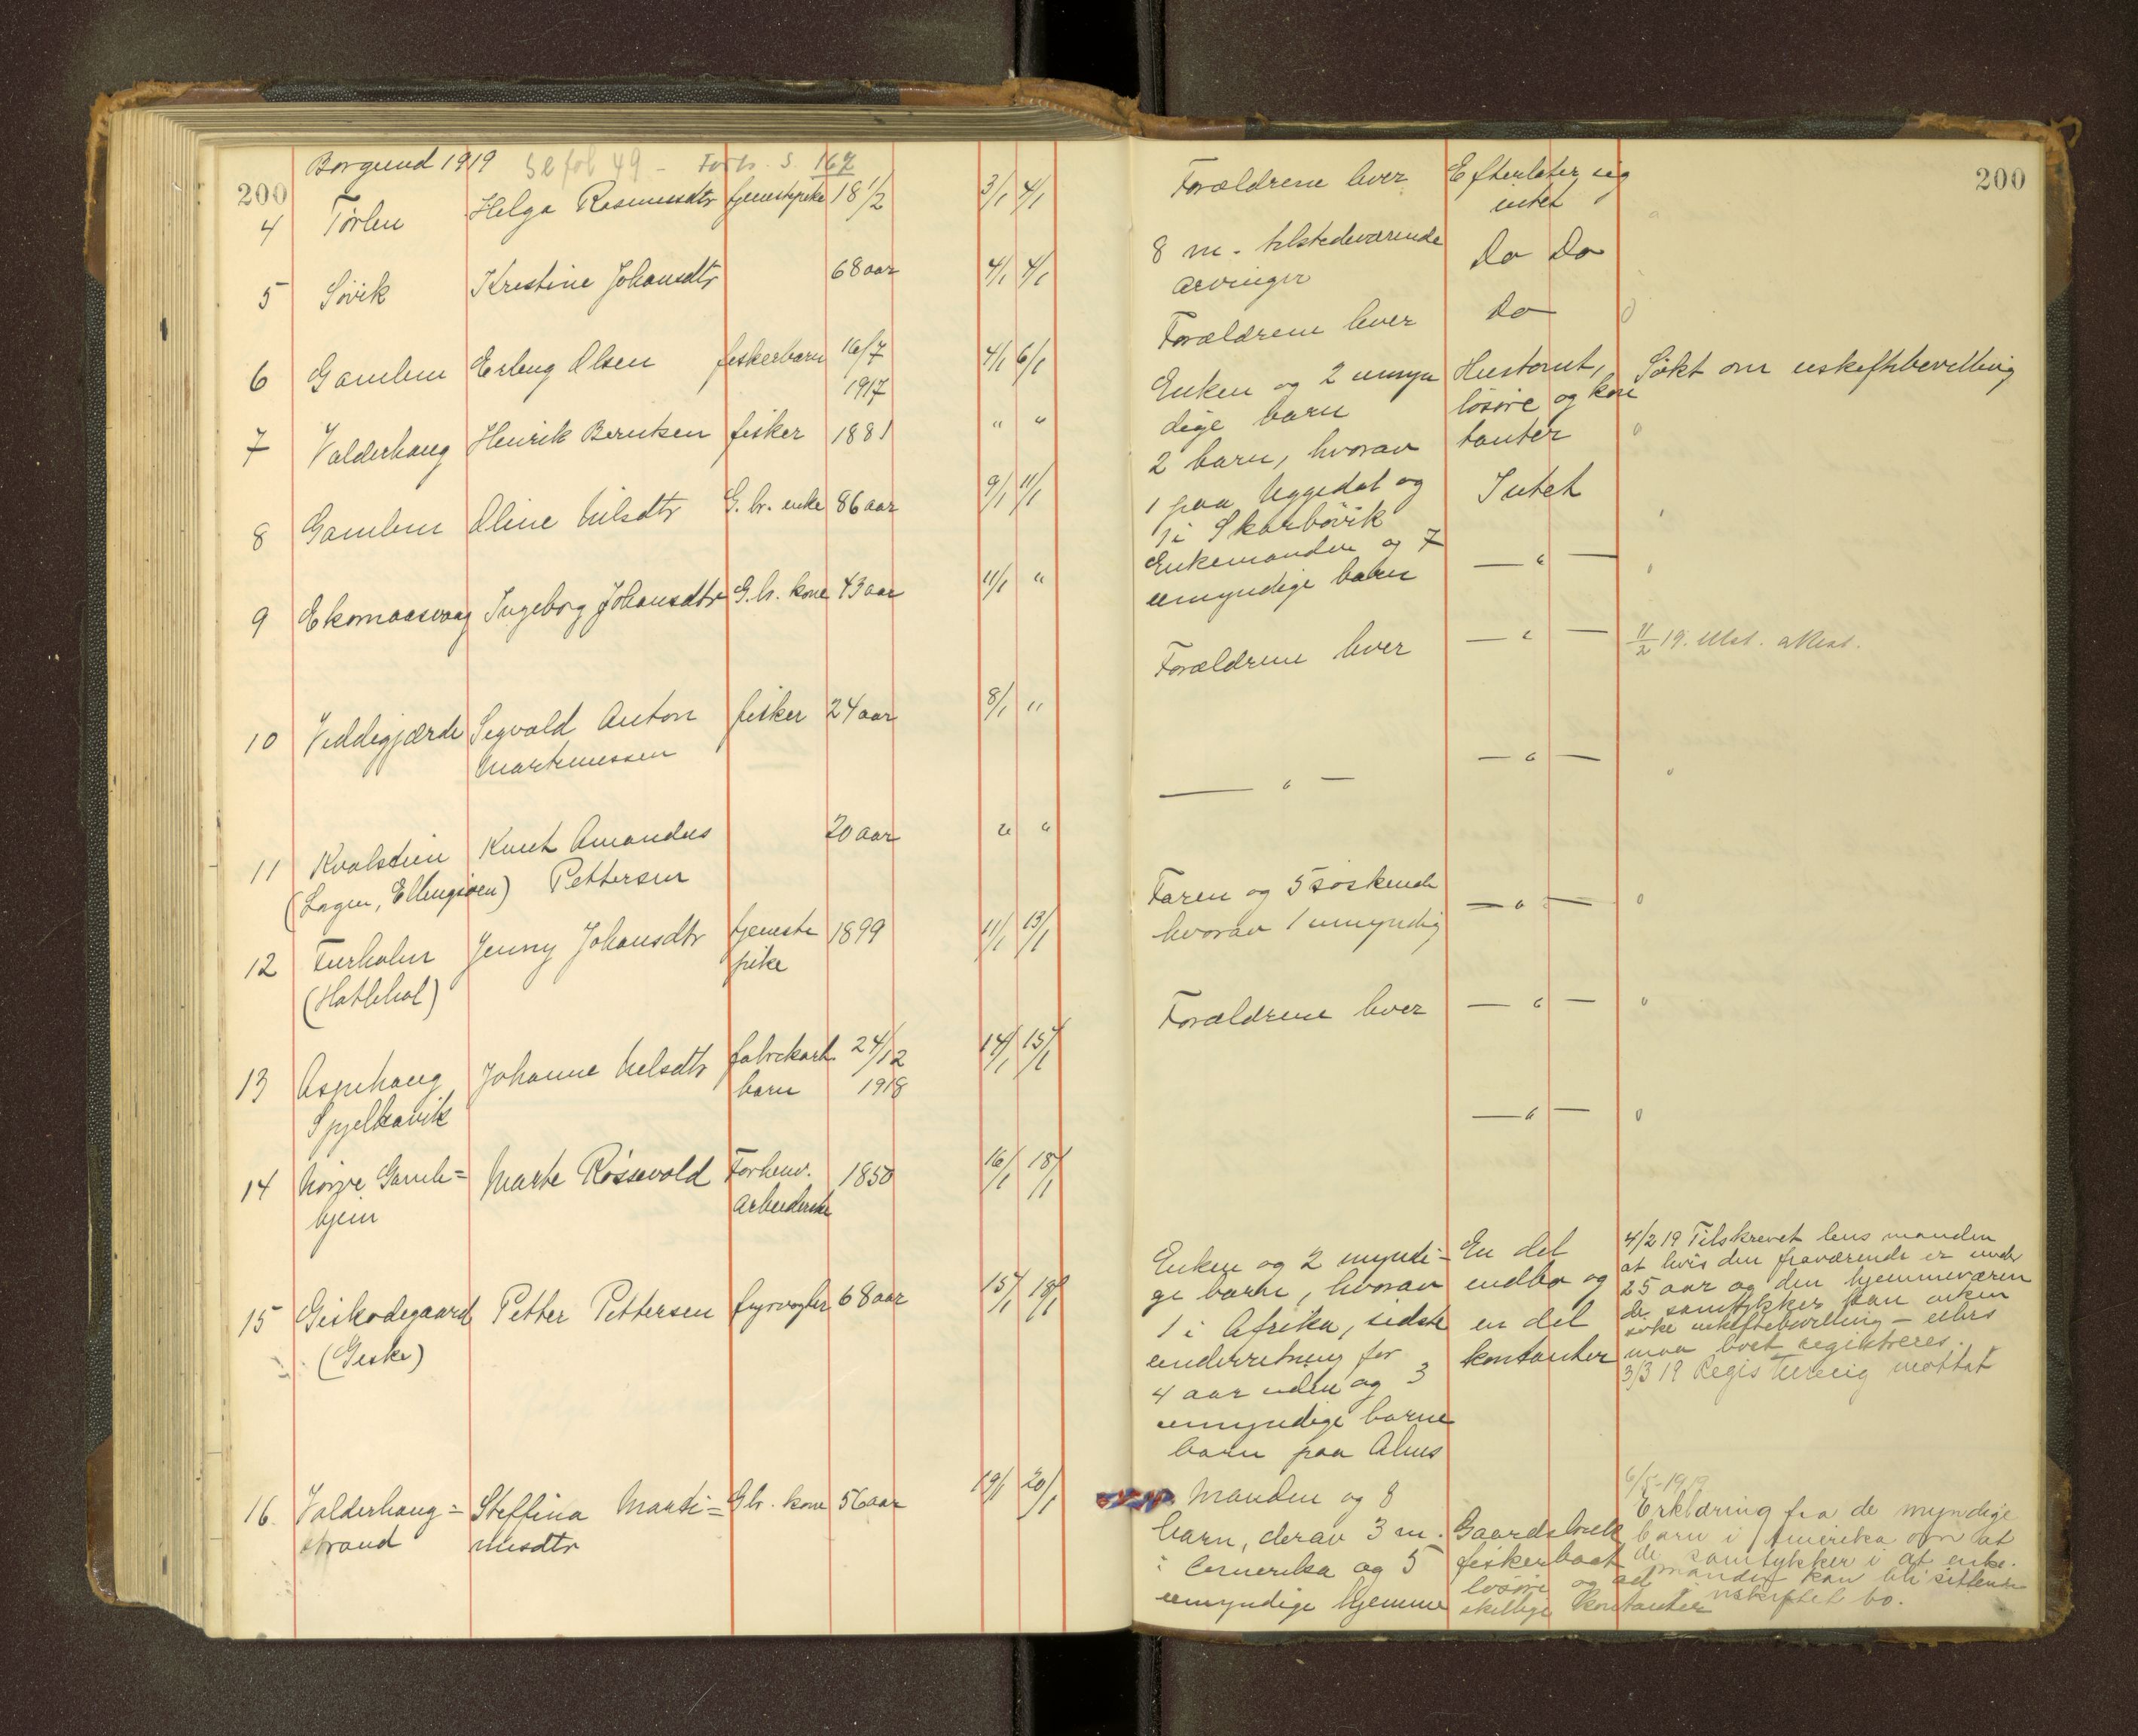 Borgund 1919
200
4 Tørlen Helga Rasmusdtr tjenestepike 18 1/2 3/1 4/1
5 Søvik Kristine Johansdtr 68 aar 4/1 4/1
6 Gamlem Erling Olsen fiskerbarn 16/7 4/1 6/1
1917
7 Valderhaug Henrik Berntsen fisker 1881 " "
8 Gamlem Oline Nilsdtr G. br. enke 86 aar 9/1 11/1
9 Ekornaasvaag Ingeborg Johansdtr G. br. kone 43 aar 11/1 "
10 Veddegjærde Sigvald Anton fisker 24 aar 8/1 "
Martinussen
11 Kvalstein Knut Amandus 20 aar " "
(Langen, Ellingsøen) Pettersen
12 Furholm Jenny Johansdtr tjeneste 1899 11/1 13/1
(Hatlehol) pike
13 Aspehaug Johanne Nilsdtr fabrikarb. 24/12 14/1 15/1
Spjelkavik barn 1918
14 Nørve Gamle= Marte Røssevold Forhenv. 1850 16/1 18/1
hjem Arbeiderske
15 Giskødegaard Petter Pettersen fyrvogter 68 aar 15/1 18/1
(Giske)
16 Valderhaug= Steffina Marti= Gbr. kone 56 aar 19/1 20/1
strand nusdtr
200
Forældrene lever Efterlater sig
intet
8 m. tilstedeværende Do Do
arvinger
Forældrene lever Do 0
Enken og 2 umyn Hustomt, Søkt om uskiftebevilling
dige barn løsøre og kon
2 barn, hvorav tanter 0
1 paa Uggedal og Intet
1 i Skarbøvik
Enkemanden og 7 — " —
umyndige barn
Forældrene lever — " — 11/2 19. Utst. attest.
— " — — " — 0
Faren og 5 søskende — " — 0
hvorav 1 umyndig
Forældrene lever — " — 0
— " — 0
Enken og 2 myndi- En del 4/2 19 Tilskrevet lensmanden
ge barn, hvorav indbo og at hvis den fraværende er under
1 i Afrika, sidste en del 25 aar og den hjemmeværen
underretning for kontanter de samtykker kan enken
4 aar siden og 3 søke uskiftebevilling – ellers
umyndige barne maa boet registreres.
barn paa Alnes 3/3 19 Registrering mottat
Manden og 8 6/5-1919
barn, derav 3 m. Gaardsbruk Erklæring fra de myndige
i Amerika og 5 fiskerbaat barn i Amerika om at
umyndige hjemme løsøre og ad de samtykker i at enke.
skillige kontanter manden kan bli sittende
i uskiftet bo.